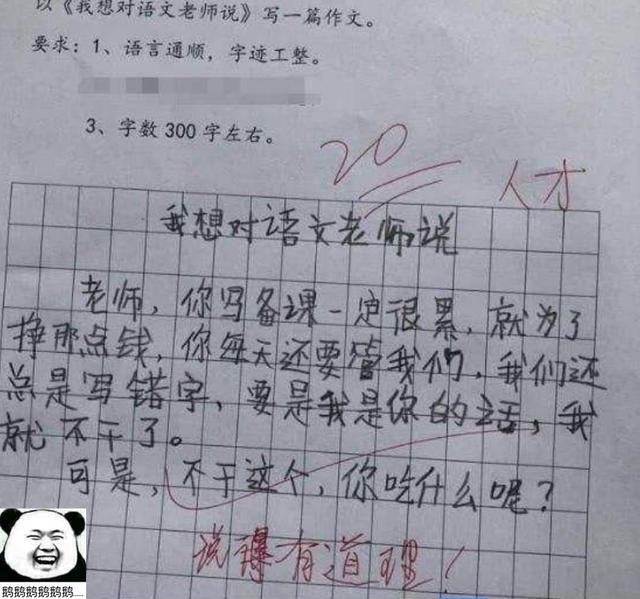 以《我想对语文老师说》写一篇作文。
要求：1、语言通顺，字迹工整。
3、字数300字左右。
20
人才
我想对语文老师说
老师，你写备课一定很累，就为了
挣那点钱，你每天还要管我们，我们还
总是写错字，要是我是你的话，我
就不干了。
可是，不干这个，你吃什么呢？
说得有道理！
鹅鹅鹅鹅鹅鹅......